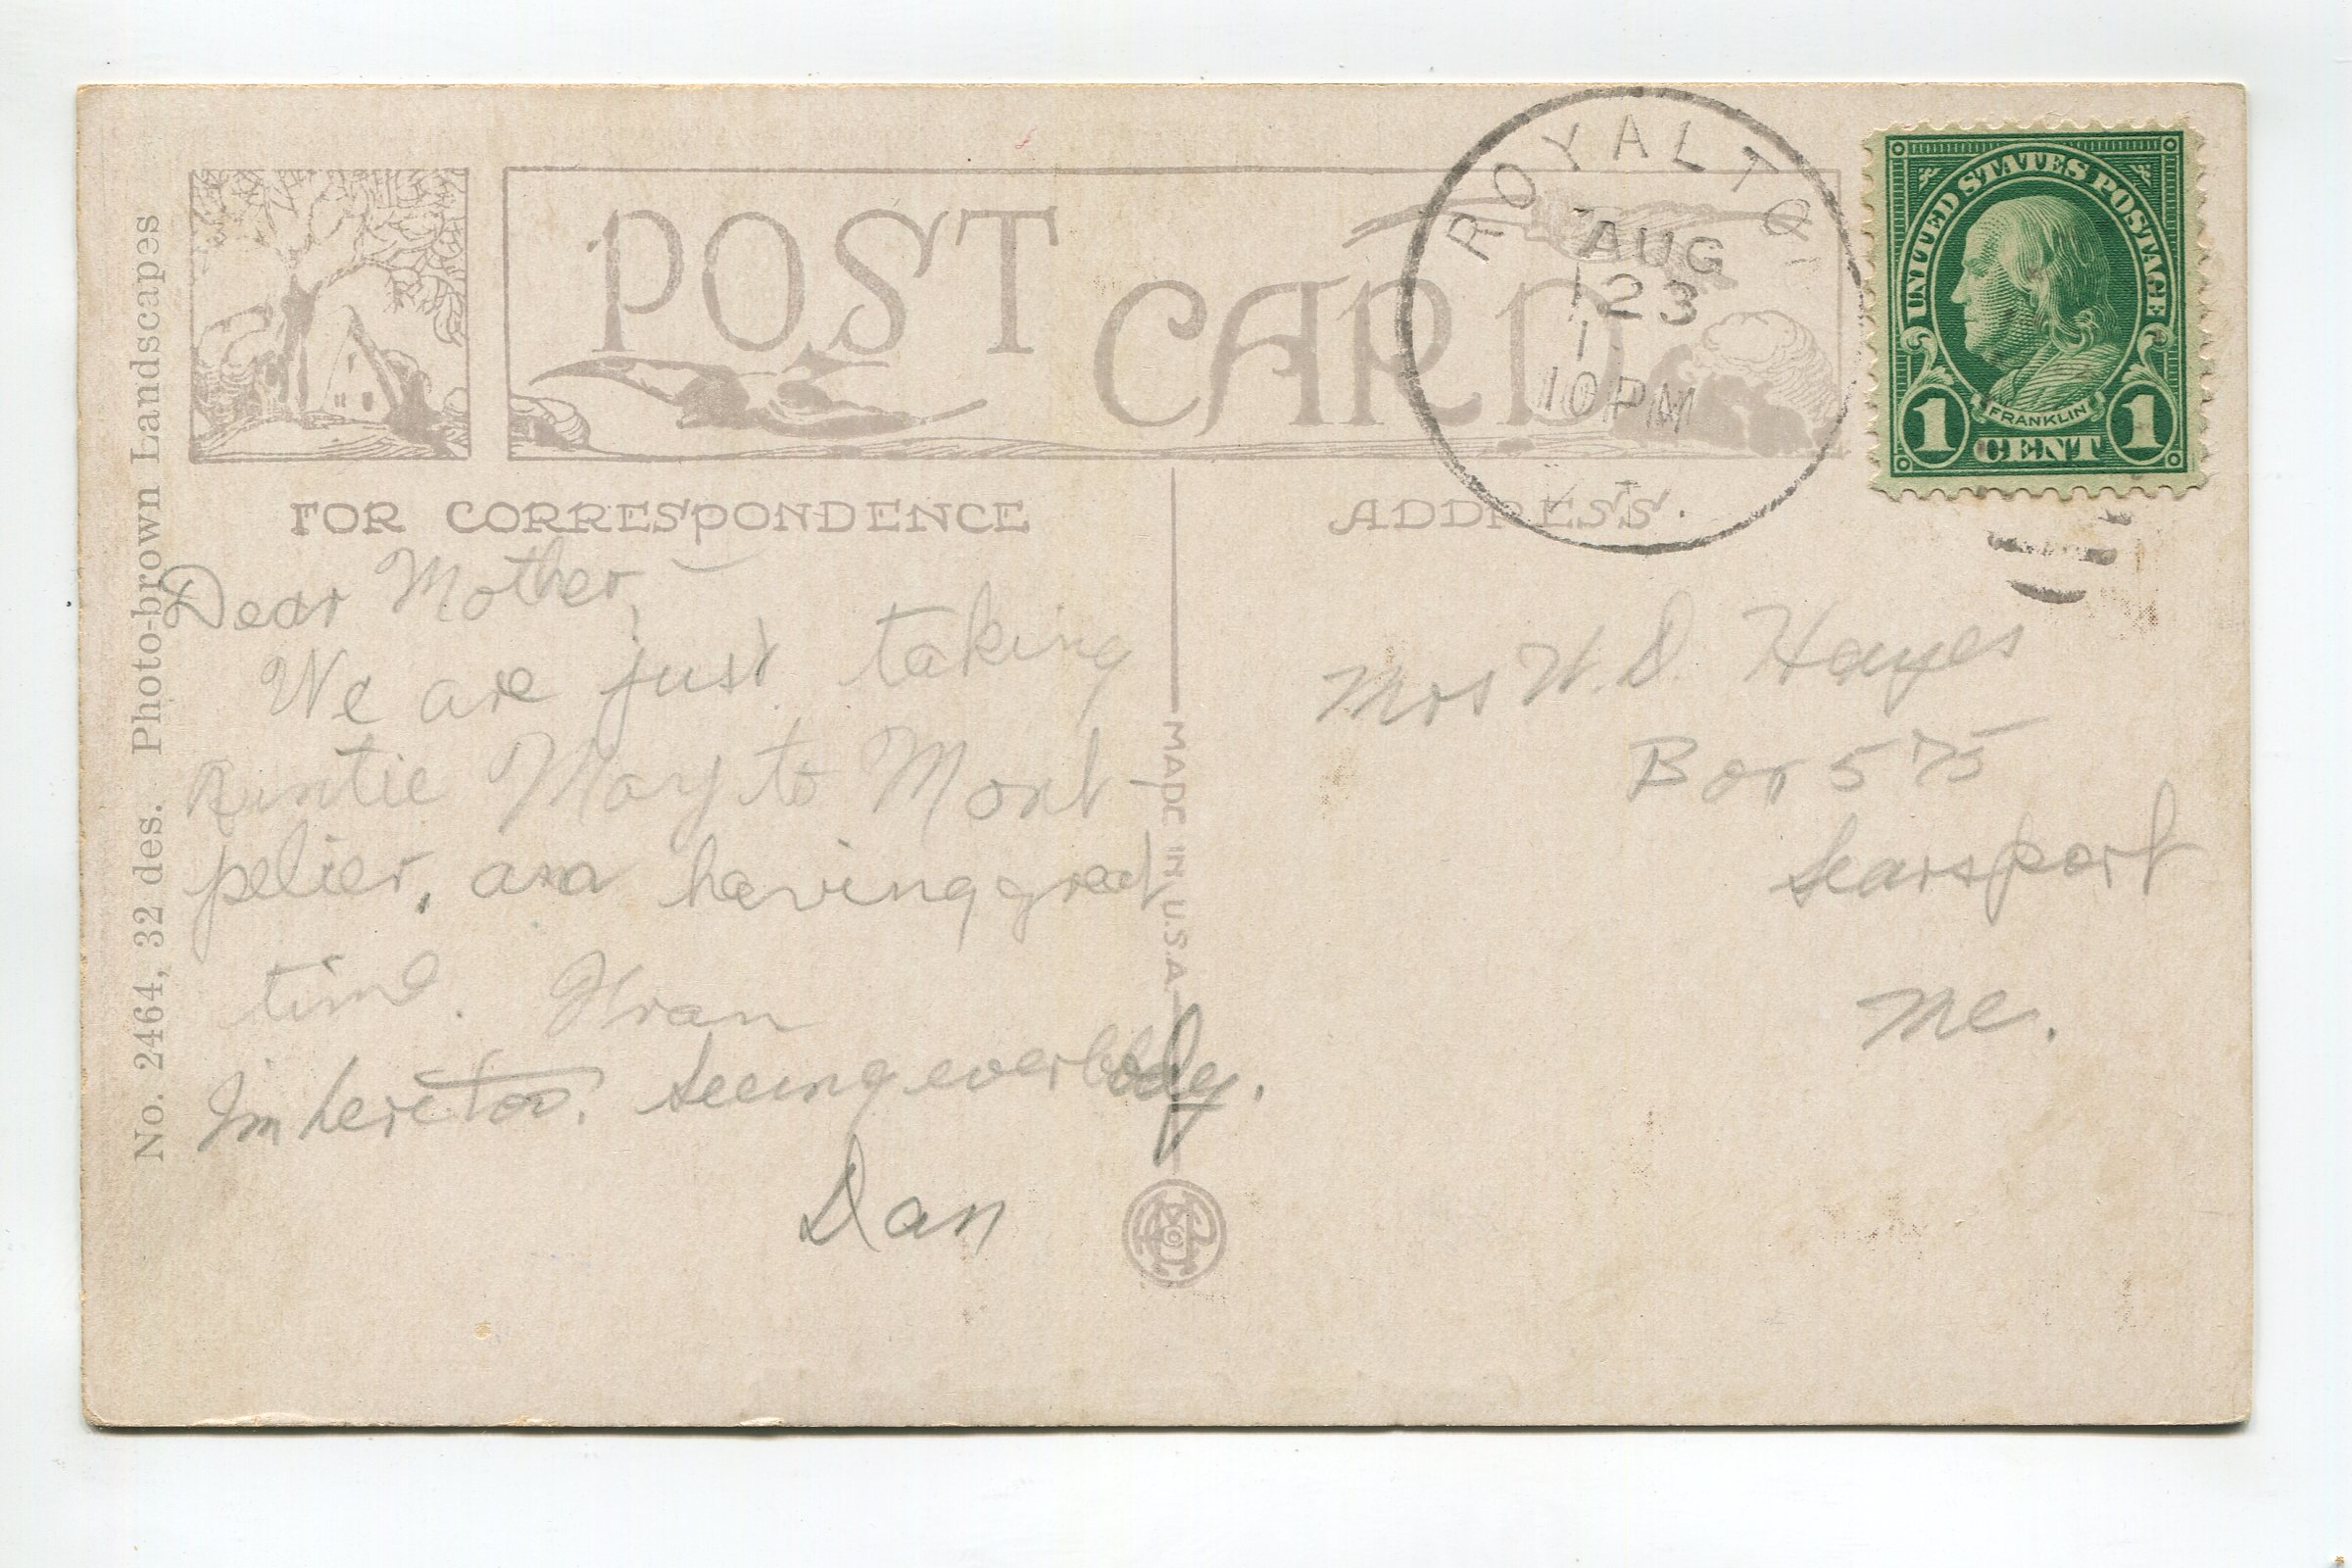 POST CARD
ROYALTO
AUG
23
10PM
V T.
UNITED STATES POSTAGE
FRANKLIN
1 CENT 1
FOR CORRESPONDENCE
ADDRESS.
Dear Mother, —
We are just taking
Auntie May to Mont-
pelier, and having great
time. Fran
Im here too. Seeing everbody.
Dan
Mrs W. D. Hayes
Box 575
Searsport
Me.
MADE IN U.S.A.
No. 2464, 32 des. Photo-brown Landscapes